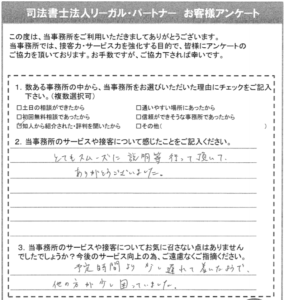 司法書士法人リーガル・パートナー　お客様アンケート
この度は、当事務所をご利用いただきましてありがとうございます。
当事務所では、接客力・サービス力を強化する目的で、皆様にアンケートの
ご協力を頂いております。お手数ですが、ご協力下されば幸いです。
1. 数ある事務所の中から、当事務所をお選びいただいた理由にチェックをご記入
下さい。(複数選択可)
□土日の相談ができたから　□通いやすい場所にあったから
□初回無料相談であったから　□信頼ができそうな事務所であったから
☑知人から紹介された・評判を聞いたから　□その他(　)
2. 当事務所のサービスや接客について感じたことをご記入ください。
とてもスムーズに説明等行って頂いて、
ありがとうございました。
3. 当事務所のサービスや接客についてお気に召さない点はありません
でしたでしょうか？今後のサービス向上の為、ご遠慮なくご指摘ください。
予定時間より少し遅れて着いたようで、
他の方が少し困っていました。